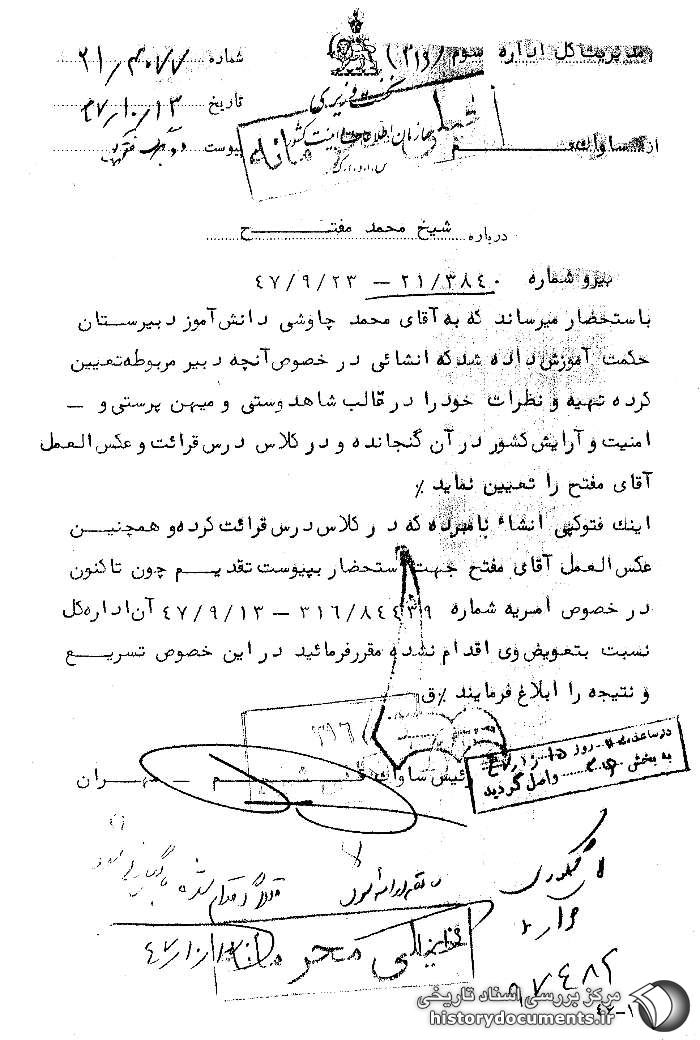 مدیریت کل اداره سوم (۳۱۶)
نخست وزیری
سازمان اطلاعات و امنیت کشور
س.ا.و.ا.ک
شماره ۲۱/۴۰۷۷
تاریخ ۴۷/۱۰/۱۳
پیوست
از ساواک قم
خیلی محرمانه
درباره شیخ محمد مفتح
پیرو شماره ۲۱/۳۸۴۰ – ۴۷/۹/۲۳
باستحضار میرساند که به آقای محمد چاوشی دانش آموز دبیرستان
حکمت آموزش داده شد که انشائی در خصوص آنچه دبیر مربوطه تعیین
کرده تهیه و نظرات خود را در قالب شاهدوستی و میهن پرستی و –
امنیت و آرایش کشور در آن گنجانده و در کلاس درس قرائت و عکس العمل
آقای مفتح را تعیین نماید ٪
اینک فتوکپی انشاء نامبرده که در کلاس درس قرائت کرده و همچنین
عکس العمل آقای مفتح جهت استحضار بپیوست تقدیم چون تاکنون
در خصوص امریه شماره ۳۱۶/۸۴۴۳۹ – ۴۷/۹/۱۳ آن اداره کل
نسبت بتعویض وی اقدام نشده مقرر فرمائید در این خصوص تسریع
و نتیجه را ابلاغ فرمایند ٪ق
۳۱۶
رئیس ساواک قم – تهران
در ساعت روز
به بخش واصل گردید
خیلی محرمانه
۹۷۴۸۲
۴۴-۱
مرکز بررسی اسناد تاریخی
historydocuments.ir